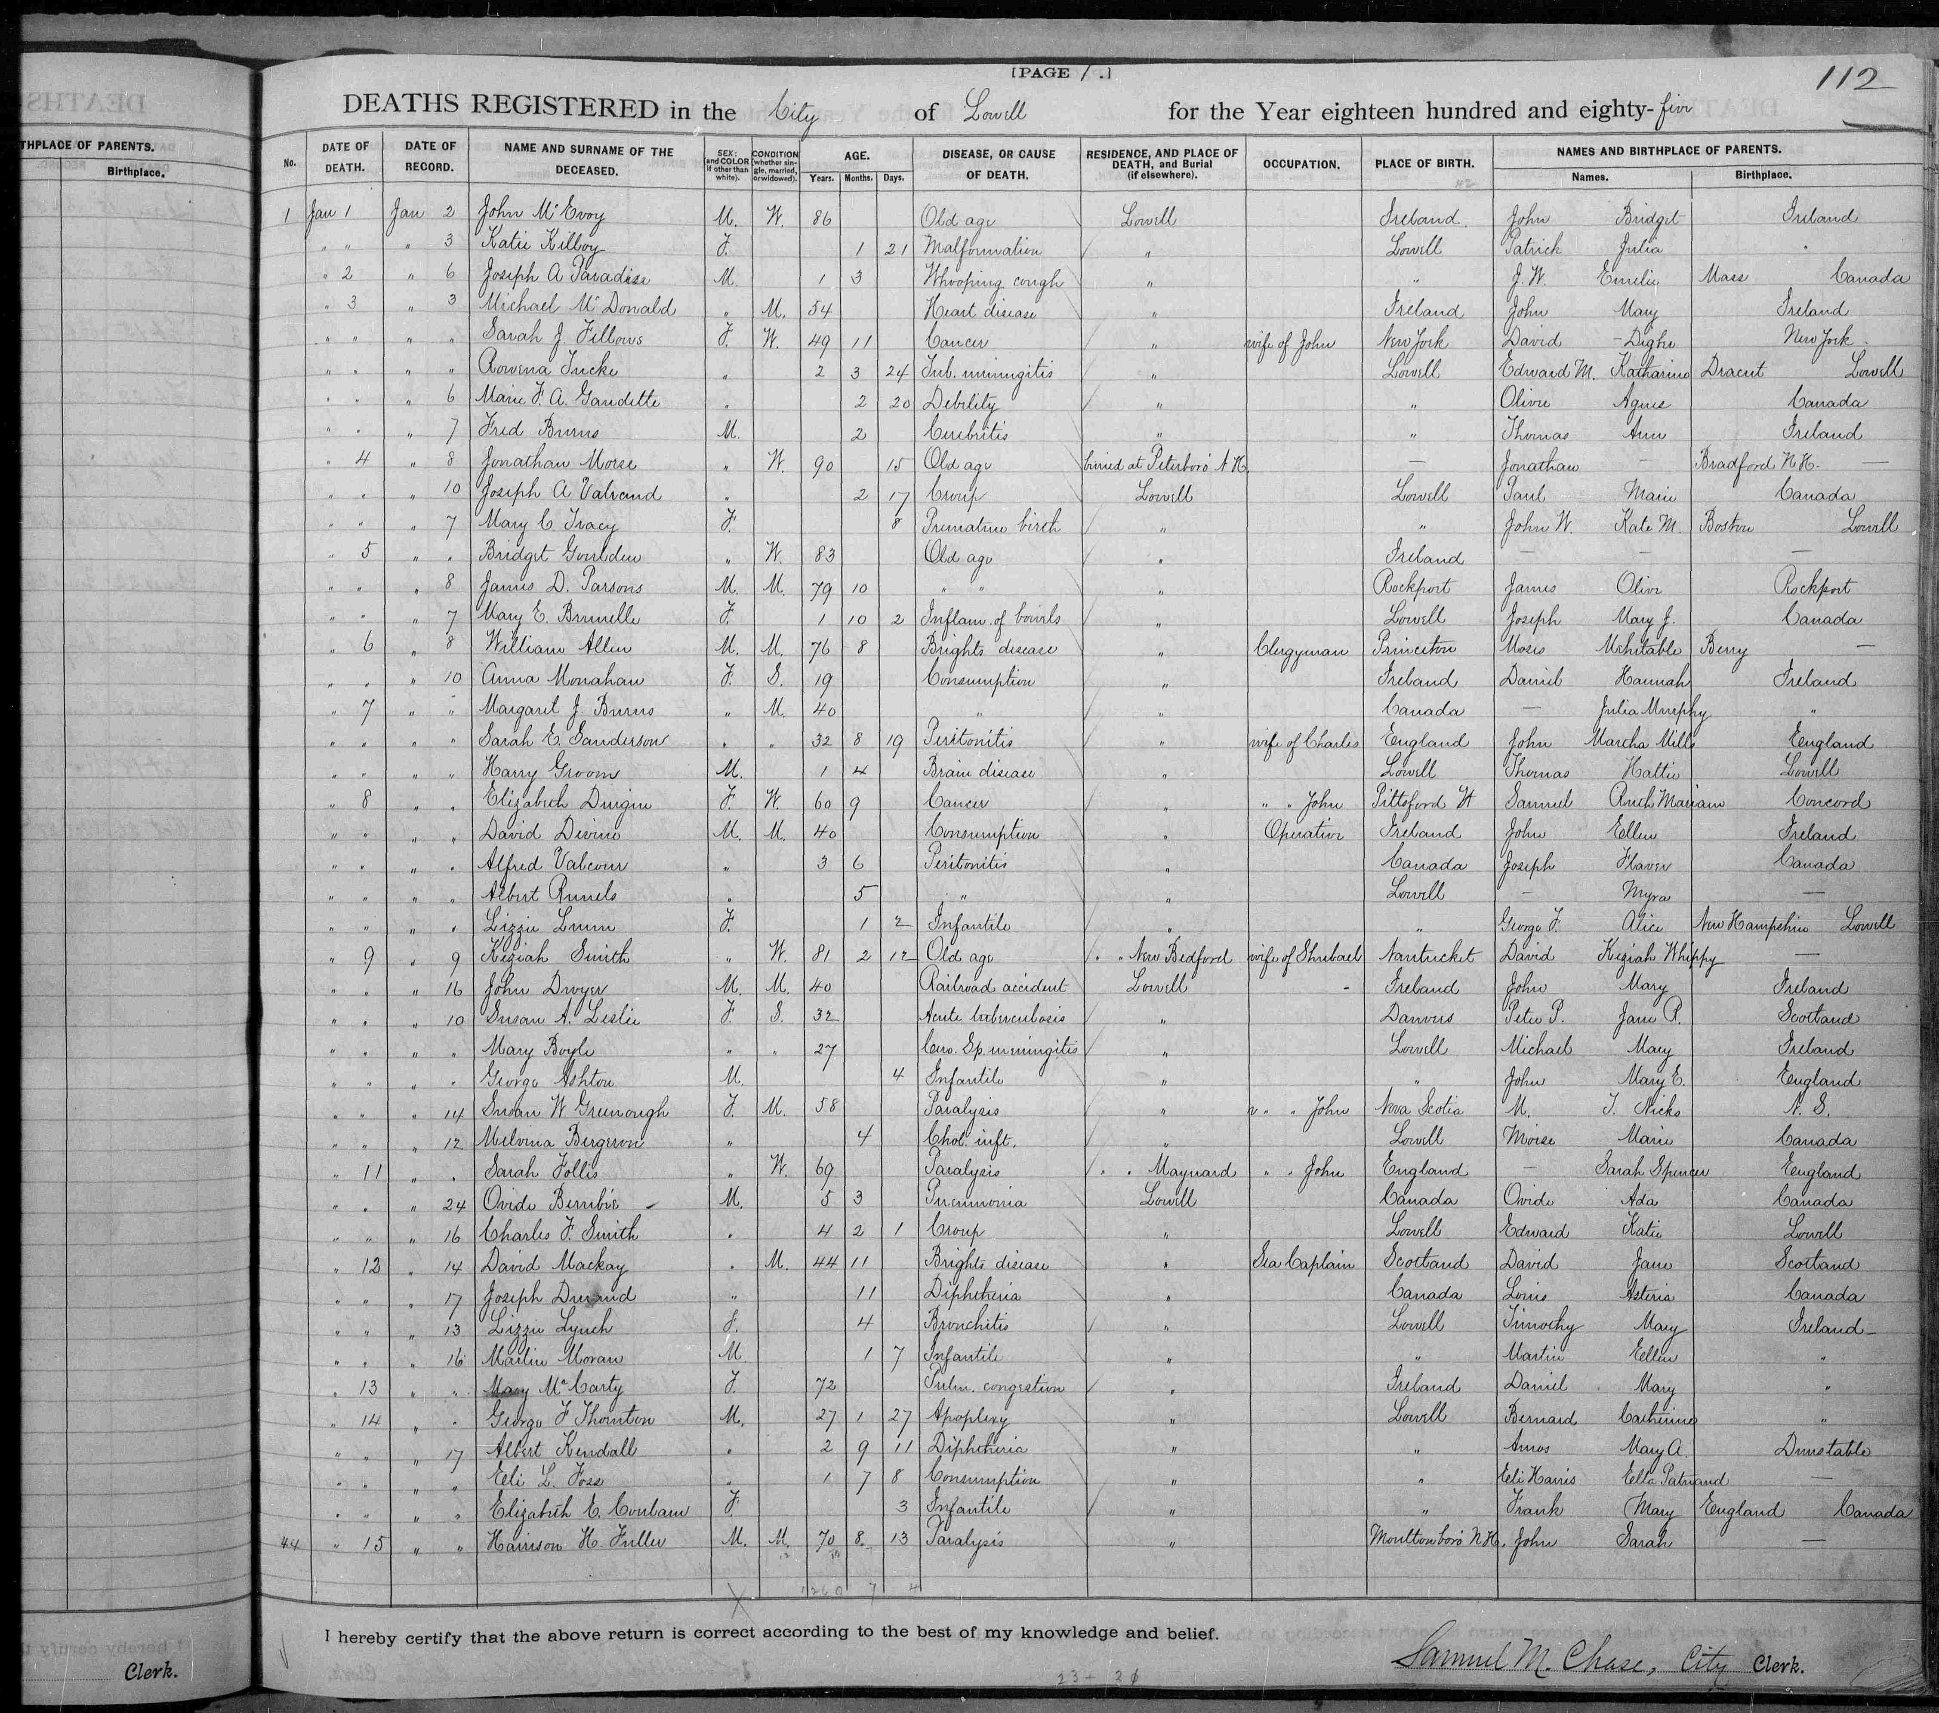 [PAGE 1.]
112
DEATHS REGISTERED in the City of Lowell for the Year eighteen hundred and eighty-five
THPLACE OF PARENTS.
Birthplace.
No. DATE OF DEATH. DATE OF RECORD. NAME AND SURNAME OF THE DECEASED. SEX; and COLOR (if other than white). CONDITION (whether single, married, or widowed). AGE. Years. Months. Days. DISEASE, OR CAUSE OF DEATH. RESIDENCE, AND PLACE OF DEATH, and Burial (if elsewhere). OCCUPATION. PLACE OF BIRTH. NAMES AND BIRTHPLACE OF PARENTS. Names. Birthplace.
1 Jan 1 Jan 2 John McEvoy M. W. 86 Old age Lowell Ireland John Bridget Ireland
" " " 3 Katie Kilboy F. 1 21 Malformation " Lowell Patrick Julia "
" 2 " 6 Joseph A Paradise M. 1 3 Whooping cough " " J. W. Emilie Mass Canada
" 3 " 3 Michael McDonald " M. 54 Heart disease " Ireland John Mary Ireland
" " " " Sarah J. Fellows F. W. 49 11 Cancer " wife of John New York David - Dighe New York
" " " " Rowena Tucke " 2 3 24 Tub. miningitis " Lowell Edward M. Katharine Dracut Lowell
" " " 6 Marie F. A. Gaudette " 2 20 Debility " " Olivie Agnes Canada
" " " 7 Fred Burns M. 2 Cerebritis " " Thomas Ann Ireland
" 4 " 8 Jonathan Morse " W. 90 15 Old age buried at Peterboro N H. — Jonathan - Bradford N.H. —
" " " 10 Joseph A Valrand " 2 17 Croup Lowell Lowell Paul Marie Canada
" " " 7 Mary C Tracy F. 8 Premature birth " " John W. Kate M. Boston Lowell
" 5 " " Bridget Goulden " W. 83 Old age " Ireland — — —
" " " 8 James D. Parsons M. M. 79 10 " " " Rockport James Olive Rockport
" " " 7 Mary E. Brunelle F. 1 10 2 Inflam. of bowels " Lowell Joseph Mary J. Canada
" 6 " 8 William Allen M. M. 76 8 Brights disease " Clergyman Princeton Moses Mehitable Berry —
" " " 10 Anna Monahan F. S. 19 Consumption " Ireland Daniel Hannah Ireland
" 7 " " Margaret J. Burns " M. 40 " " Canada — Julia Murphy "
" " " " Sarah E. Sanderson " " 32 8 19 Peritonitis " wife of Charles England John Martha Mills England
" " " " Harry Groom M. 1 4 Brain disease " Lowell Thomas Hattie Lowell
" 8 " " Elizabeth Durgin F. W. 60 9 Cancer " " " John Pittsford Vt Samuel Ruth Mariam Concord
" " " " David Devine M. M. 40 Consumption " Operative Ireland John Ellen Ireland
" " " " Alfred Valcour " 3 6 Peritonitis " Canada Joseph Flaver Canada
" " " " Albert Runels " 5 " " Lowell — Myra —
" " " " Lizzie Lunn F. 1 2 Infantile " " George F. Alice New Hampshire Lowell
" 9 " 9 Keziah Smith " W. 81 2 12 Old age " " New Bedford wife of Shubael Nantucket David Keziah Whippy —
" " " 16 John Dwyer M. M. 40 Railroad accident Lowell - Ireland John Mary Ireland
" " " 10 Susan A. Leslie F S. 32 Acute tuberculosis " Danvers Peter P. Jane R. Scotland
" " " " Mary Boyle " " 27 Cero. Sp. meningitis " Lowell Michael Mary Ireland
" " " " George Ashton M. 4 Infantile " " John Mary E. England
" " " 14 Susan W Greenough F. M. 58 Paralysis " " " John Nova Scotia M. T. Nicks N. S.
" " " 12 Melvina Bergeron " 4 Chol. inft. " Lowell Moise Marie Canada
" 11 " " Sarah Follis " W. 69 Paralysis " " Maynard " " John England — Sarah Spencer England
" " " 24 Ovide Berubie M. 5 3 Pneumonia Lowell Canada Ovide Ada Canada
" " " 16 Charles F. Smith " 4 2 1 Croup " Lowell Edward Katie Lowell
" 12 " 14 David Mackay " M. 44 11 Brights disease " Sea Captain Scotland David Jane Scotland
" " " 17 Joseph Durand " 11 Diphtheria " Canada Louis Asteria Canada
" " " 13 Lizzie Lynch F. 4 Bronchitis " Lowell Timothy Mary Ireland
" " " 16 Martin Moran M 1 7 Infantile " " Martin Ellen "
" 13 " " Mary McCarty F. 72 Pulm. congestion " Ireland Daniel Mary "
" 14 " " George F Thornton M. 27 1 27 Apoplexy " Lowell Bernard Catherine "
" " " 17 Albert Kendall " 2 9 11 Diphtheria " " Amos Mary A. Dunstable
" " " " Eli L. Foss " 1 7 8 Consumption " " Eli Harris Ella Patnand —
" " " " Elizabeth E. Coubam F. 3 Infantile " " Frank Mary England Canada
44 " 15 " " Harrison H. Fuller M. M. 70 8 13 Paralysis " Moultonboro N.H. John Sarah —
1260 7 4
I hereby certify that the above return is correct according to the best of my knowledge and belief.
Samuel M. Chase, City Clerk.
Clerk.